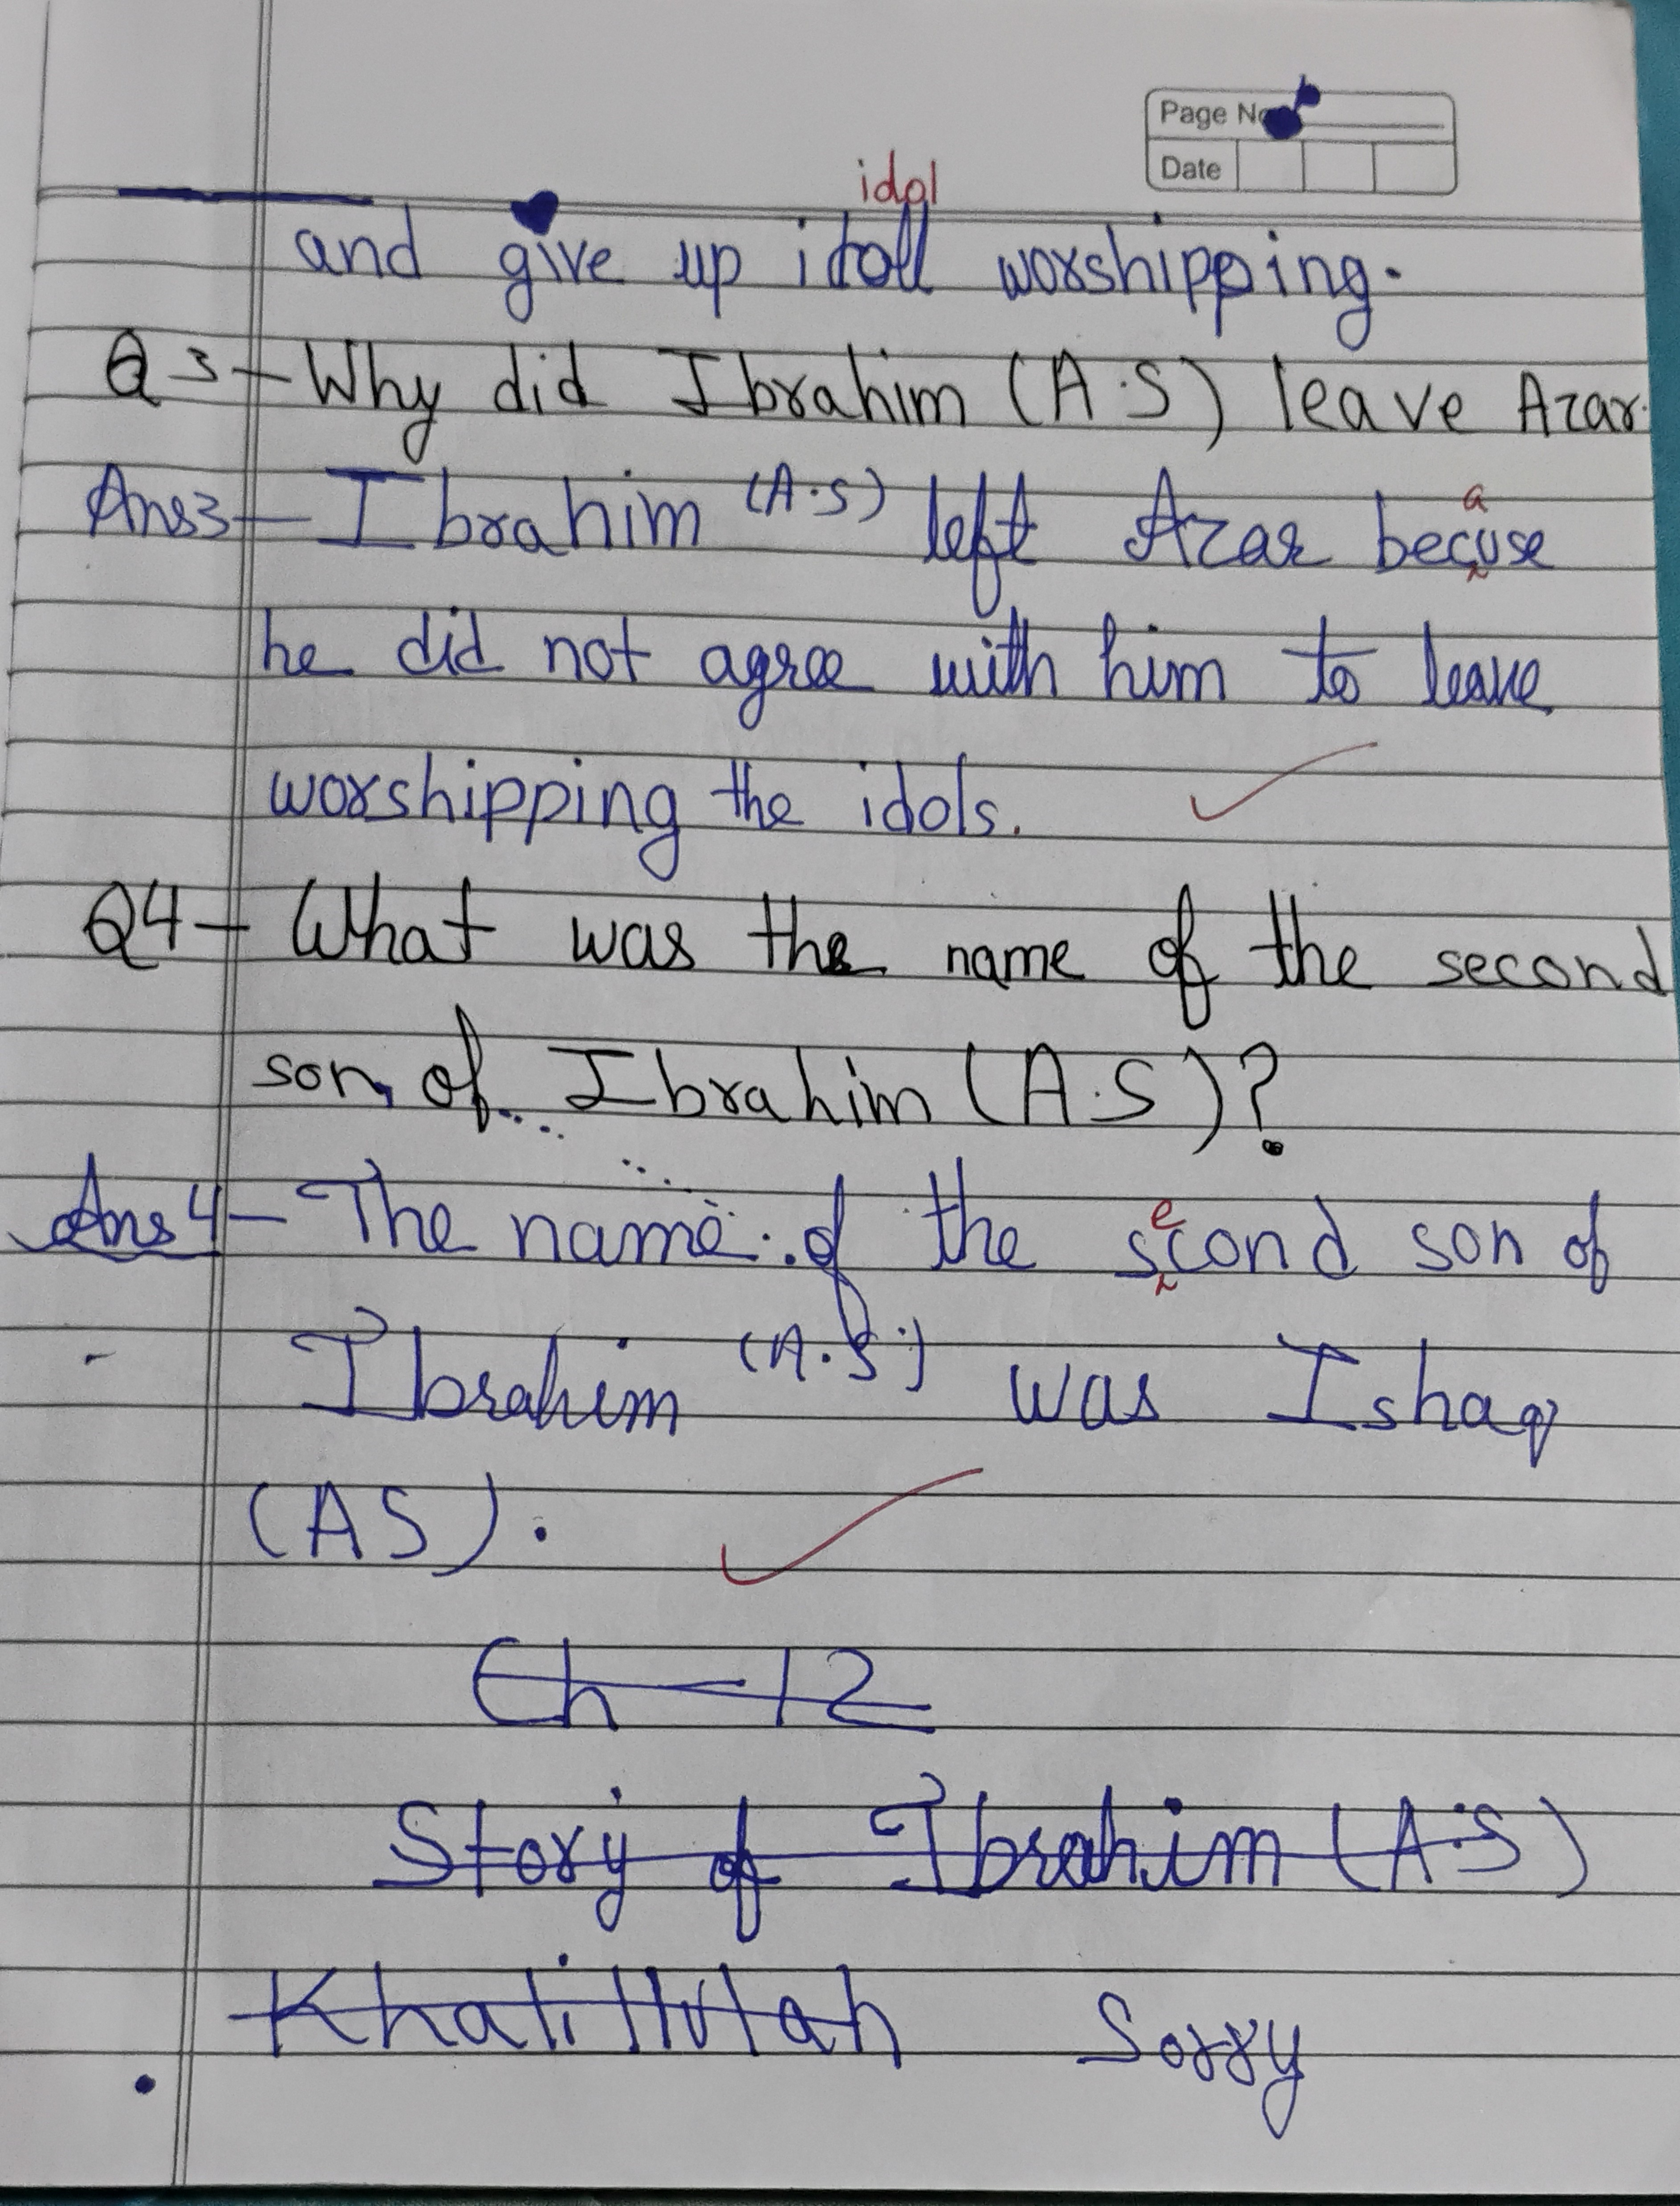 Page No.
Date
idol
and give up itoll worshipping.
Q3-Why did Ibrahim (A.S) leave Azar.
a
Ans3-Ibrahim (A.S) left Azar becuse
he did not agree with him to leave
worshipping the idols.
Q4-What was the name of the second
son of Ibrahim (A.S)?
e
Ans 4-The name of the scond son of
Ibrahim (A.S) was Ishaq
(AS).
Ch-12
Story of Ibrahim (A.S)
Khalillulah Sorry